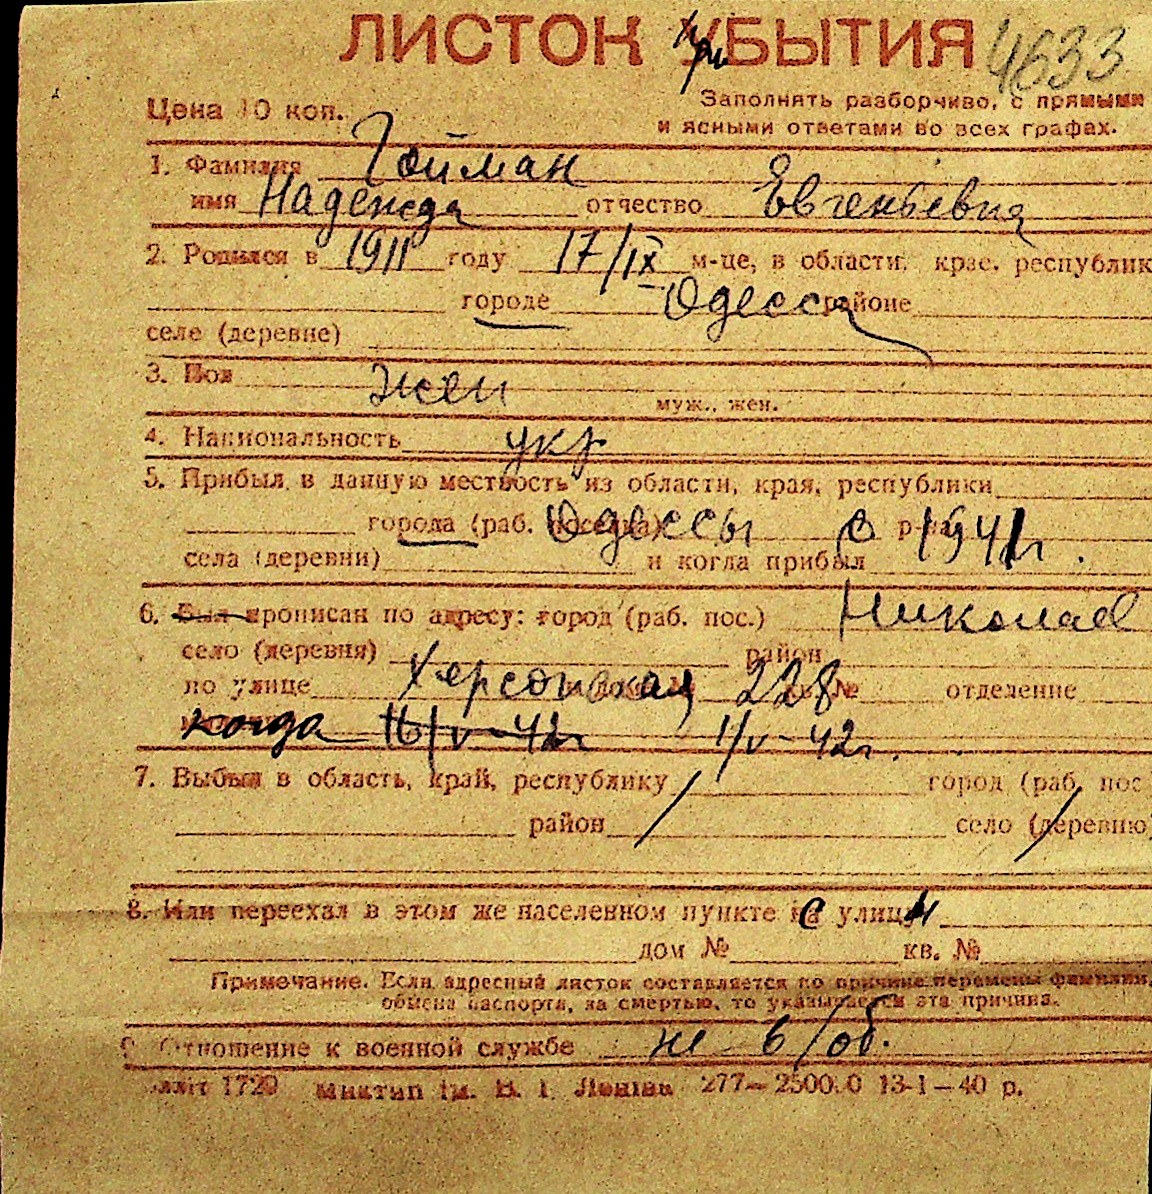 ЛИСТОК при УБЫТИЯ 4633
Цена 10 коп.
Заполнять разборчиво, с прямыми
и ясными ответами во всех графах.
1. Фамилия Гойман
имя Надежда отчество Евгеньевна
2. Родился в 1911 году 17/IX м-це, в области, крае, республик
городе Одесса районе
селе (деревне)
3. Пол жен
муж., жен.
4. Национальность укр
5. Прибыл в данную местность из области, края, республики
города (раб. поселка) Одессы с р-на 1941 г.
села (деревни) и когда прибыл
6. Был прописан по адресу: город (раб. пос.) Николаев
село (деревня) район
по улице Херсонская 228 кв. № отделение
когда 16/V-42г 1/V-42г.
7. Выбыл в область, край, республику город (раб. пос
район село (деревню)
8. Или переехал в этом же населенном пункте с улицы
дом № кв. №
Примечание. Если адресный листок составляется по причине перемены фамилии,
обмена паспорта, за смертью, то указывается эта причина.
9. Отношение к военной службе не в/об.
1720 им. В. І. Леніна 277—2500.0 13-1—40 р.